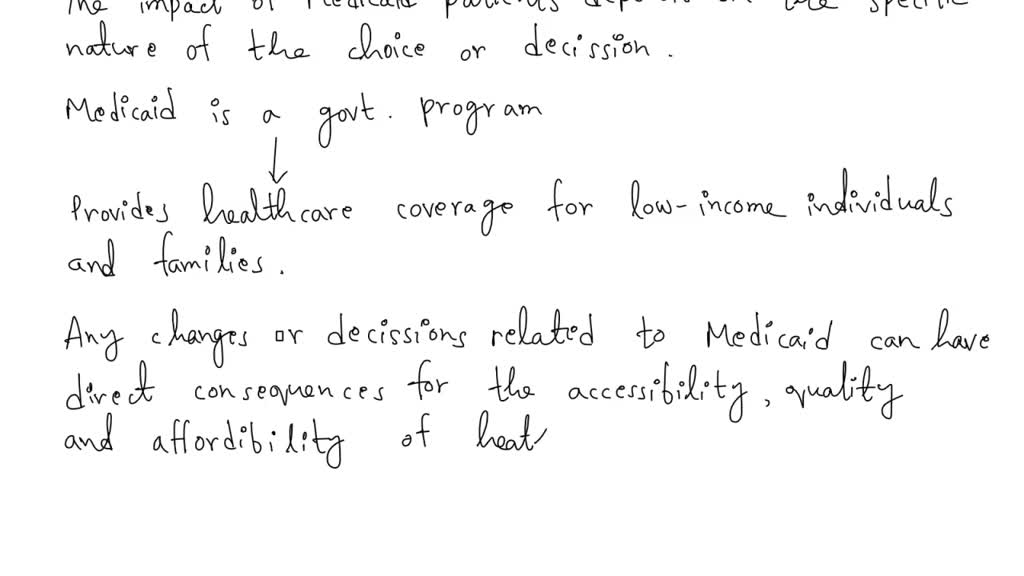 The impact of Medicaid patients depends on the specific
nature of the choice or decission.
Medicaid is a govt. program
Provides healthcare coverage for low-income individuals
and families.
Any changes or decissions related to Medicaid can have
direct consequences for the accessibility, quality
and affordibility of heat